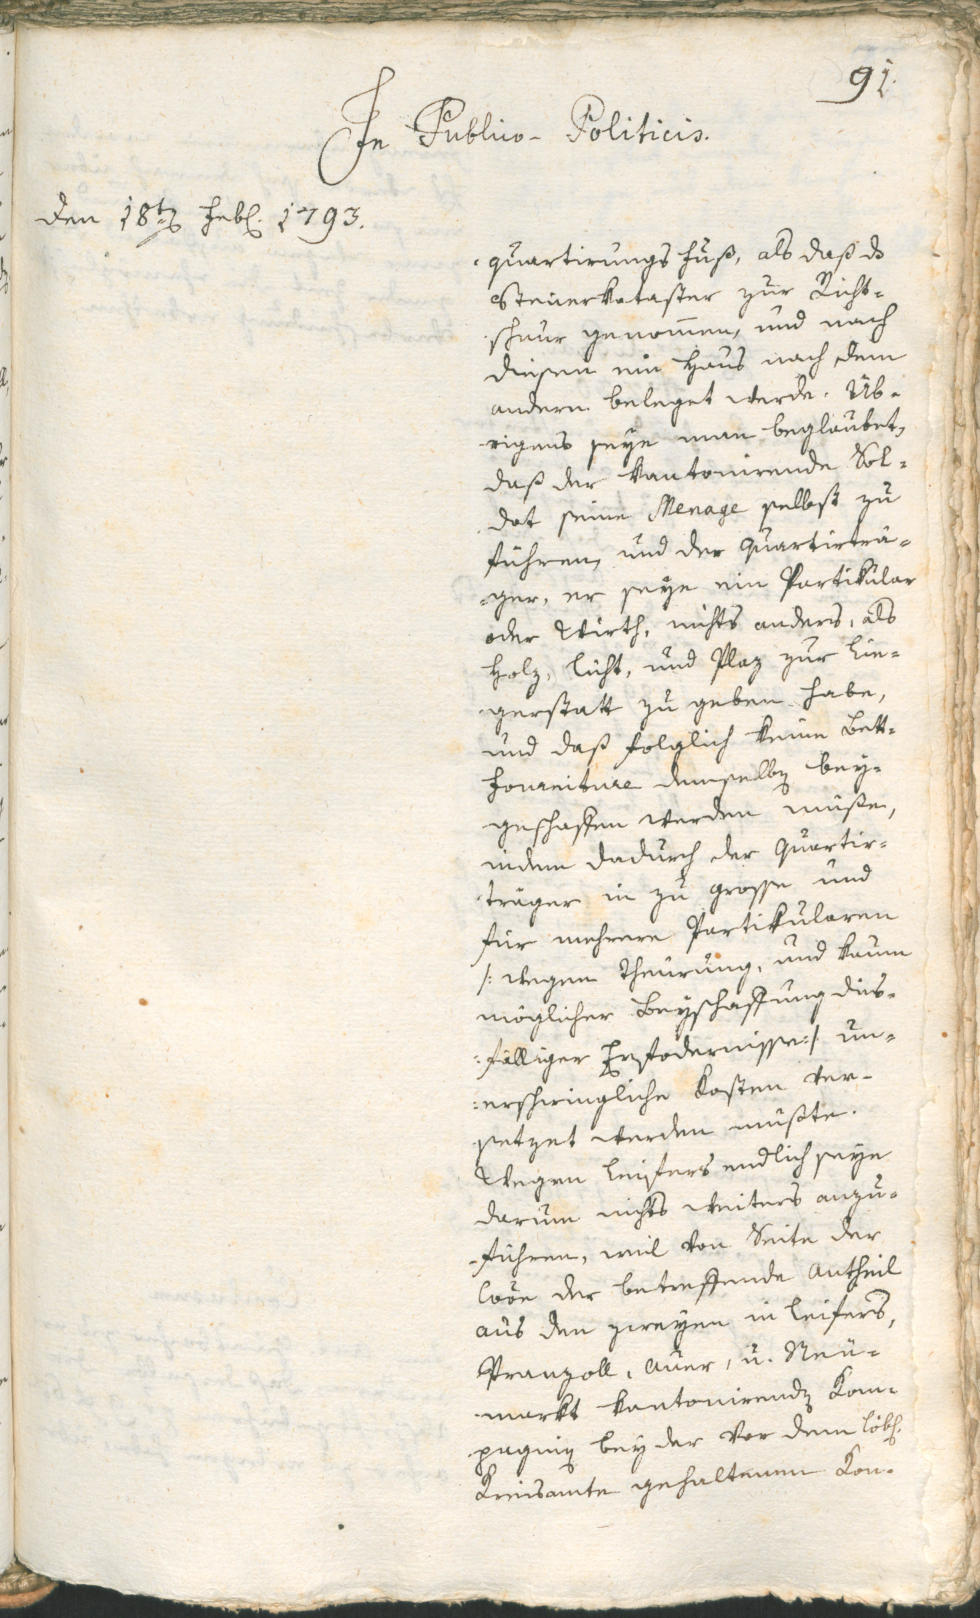 91.
In Publico-Politicis.
Den 18t Febr. 1793.
quartirungs Fuß, als daß de
Steuerkataster zur Richt-
schnur genommen, und nach
diesen ein Haus nach dem
andern beleget werde. Üb-
rigens seye man beglaubet,
daß der kantonirende Sol-
dat seine Menage selbst zu
führen, und der Quartierträ-
ger, er seye ein Partikular
oder Wirth, nichts anders, als
Holz, Licht, und Plaz zur Lie-
gerstatt zu geben habe,
und daß folglich keine Bett-
Fourniture demselben bey-
geschaffen werden müße,
indem dadurch der Quartir-
träger in zu grosse und
für mehrere Partikularen
/: wegen Theurung, und kaum
möglicher Beyschaffung dies-
fälliger Erfodernisse :/ un-
erschwingliche Kosten ver-
setzet werden müßte.
Wegen Leifers endlich seye
darum nichts weiters anzu-
führen, weil von Seite der
Löbe der betreffende Antheil
aus den zweyen in Leifers,
Pranzoll, Auer, u. Neu-
markt kantonirenden Kom-
pagnien bey der vor dem löbl.
Kreisamte gehaltenen Kon-